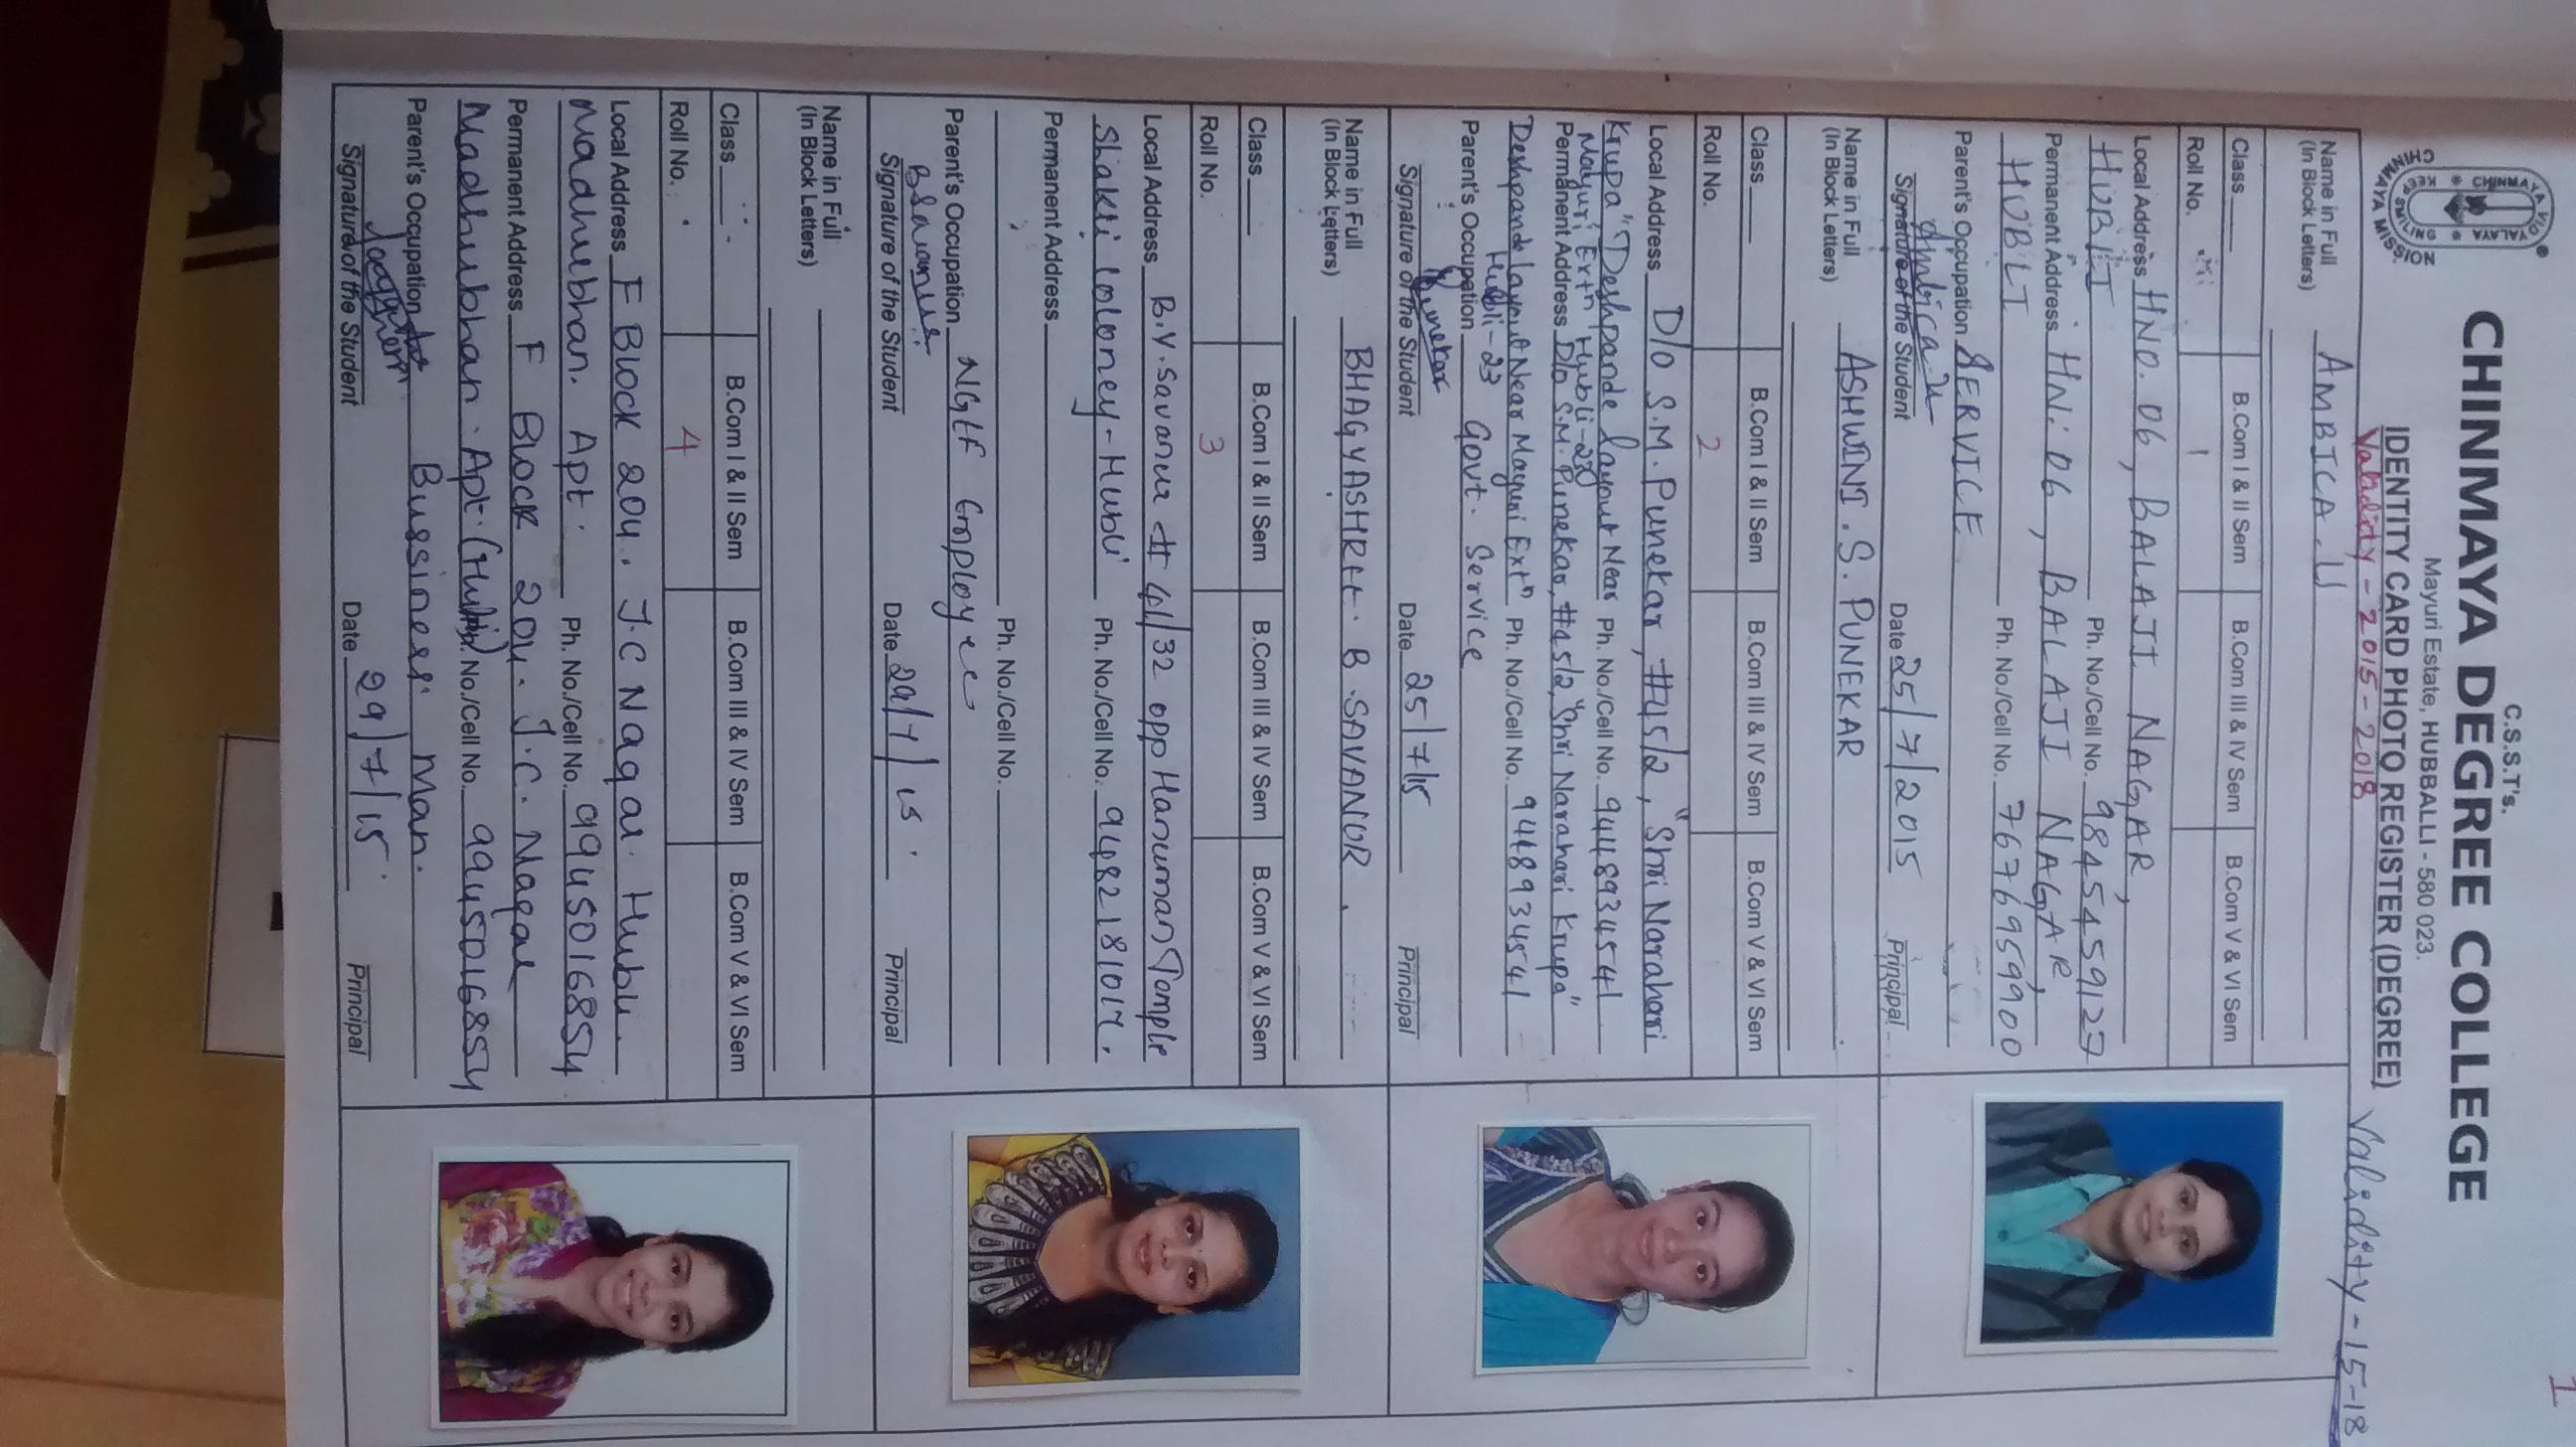 1
C.S.S.T's.
CHINMAYA DEGREE COLLEGE
Mayuri Estate, HUBBALLI - 580 023.
IDENTITY CARD PHOTO REGISTER (DEGREE)
Validity - 2015 - 2018
Validity - 15-18
CHINMAYA VIDYALAYA
KEEP SMILING
CHINMAYA MISSION
Name in Full AMBICA. U
(In Block Letters)
Class B.Com I & II Sem B.Com III & IV Sem B.Com V & VI Sem
Roll No. 1
Local Address HNO. 06, BALAJI NAGAR,
HUBLI Ph. No./Cell No. 9845459127
Permanent Address HN: 06, BALAJI NAGAR,
HUBLI Ph. No./Cell No. 7676959900
Parent's Occupation SERVICE
Ambica
Signature of the Student Date 25/7/2015 Principal
Name in Full ASHWINI. S. PUNEKAR
(In Block Letters)
Class B.Com I & II Sem B.Com III & IV Sem B.Com V & VI Sem
Roll No. 2
Local Address D/o S.M. Punekar, #45/2, "Shri Narahari
Krupa" Deshpande layout Near Ph. No./Cell No. 9448934541
Mayuri Extn Hubli-23
Permanent Address D/o S.M. Punekar, #45/2, "Shri Narahari Krupa"
Deshpande layout Near Mayuri Extn Ph. No./Cell No. 9448934541
Hubli-23
Parent's Occupation Govt. Service
Punekar
Signature of the Student Date 25/7/15 Principal
Name in Full BHAGYASHREE. B. SAVANUR.
(In Block Letters)
Class B.Com I & II Sem B.Com III & IV Sem B.Com V & VI Sem
Roll No. 3
Local Address B.V. Savanur # 41/32 opp Hanuman Temple
Shakti coloney-Hubli Ph. No./Cell No. 9482181017.
Permanent Address
Ph. No./Cell No.
Parent's Occupation NGEF Employee
Signature of the Student Date 29/7/15. Principal
Name in Full
(In Block Letters)
Class B.Com I & II Sem B.Com III & IV Sem B.Com V & VI Sem
Roll No. 4
Local Address F Block 204. J.C Nagar. Hubli
Madhubhan. Apt. Ph. No./Cell No. 9945016854
Permanent Address F Block 204. J.C. Nagar
Madhubhan. Apt. (Hubli) No./Cell No. 9945016854
Parent's Occupation Bussiness man.
Signature of the Student Date 29/7/15. Principal